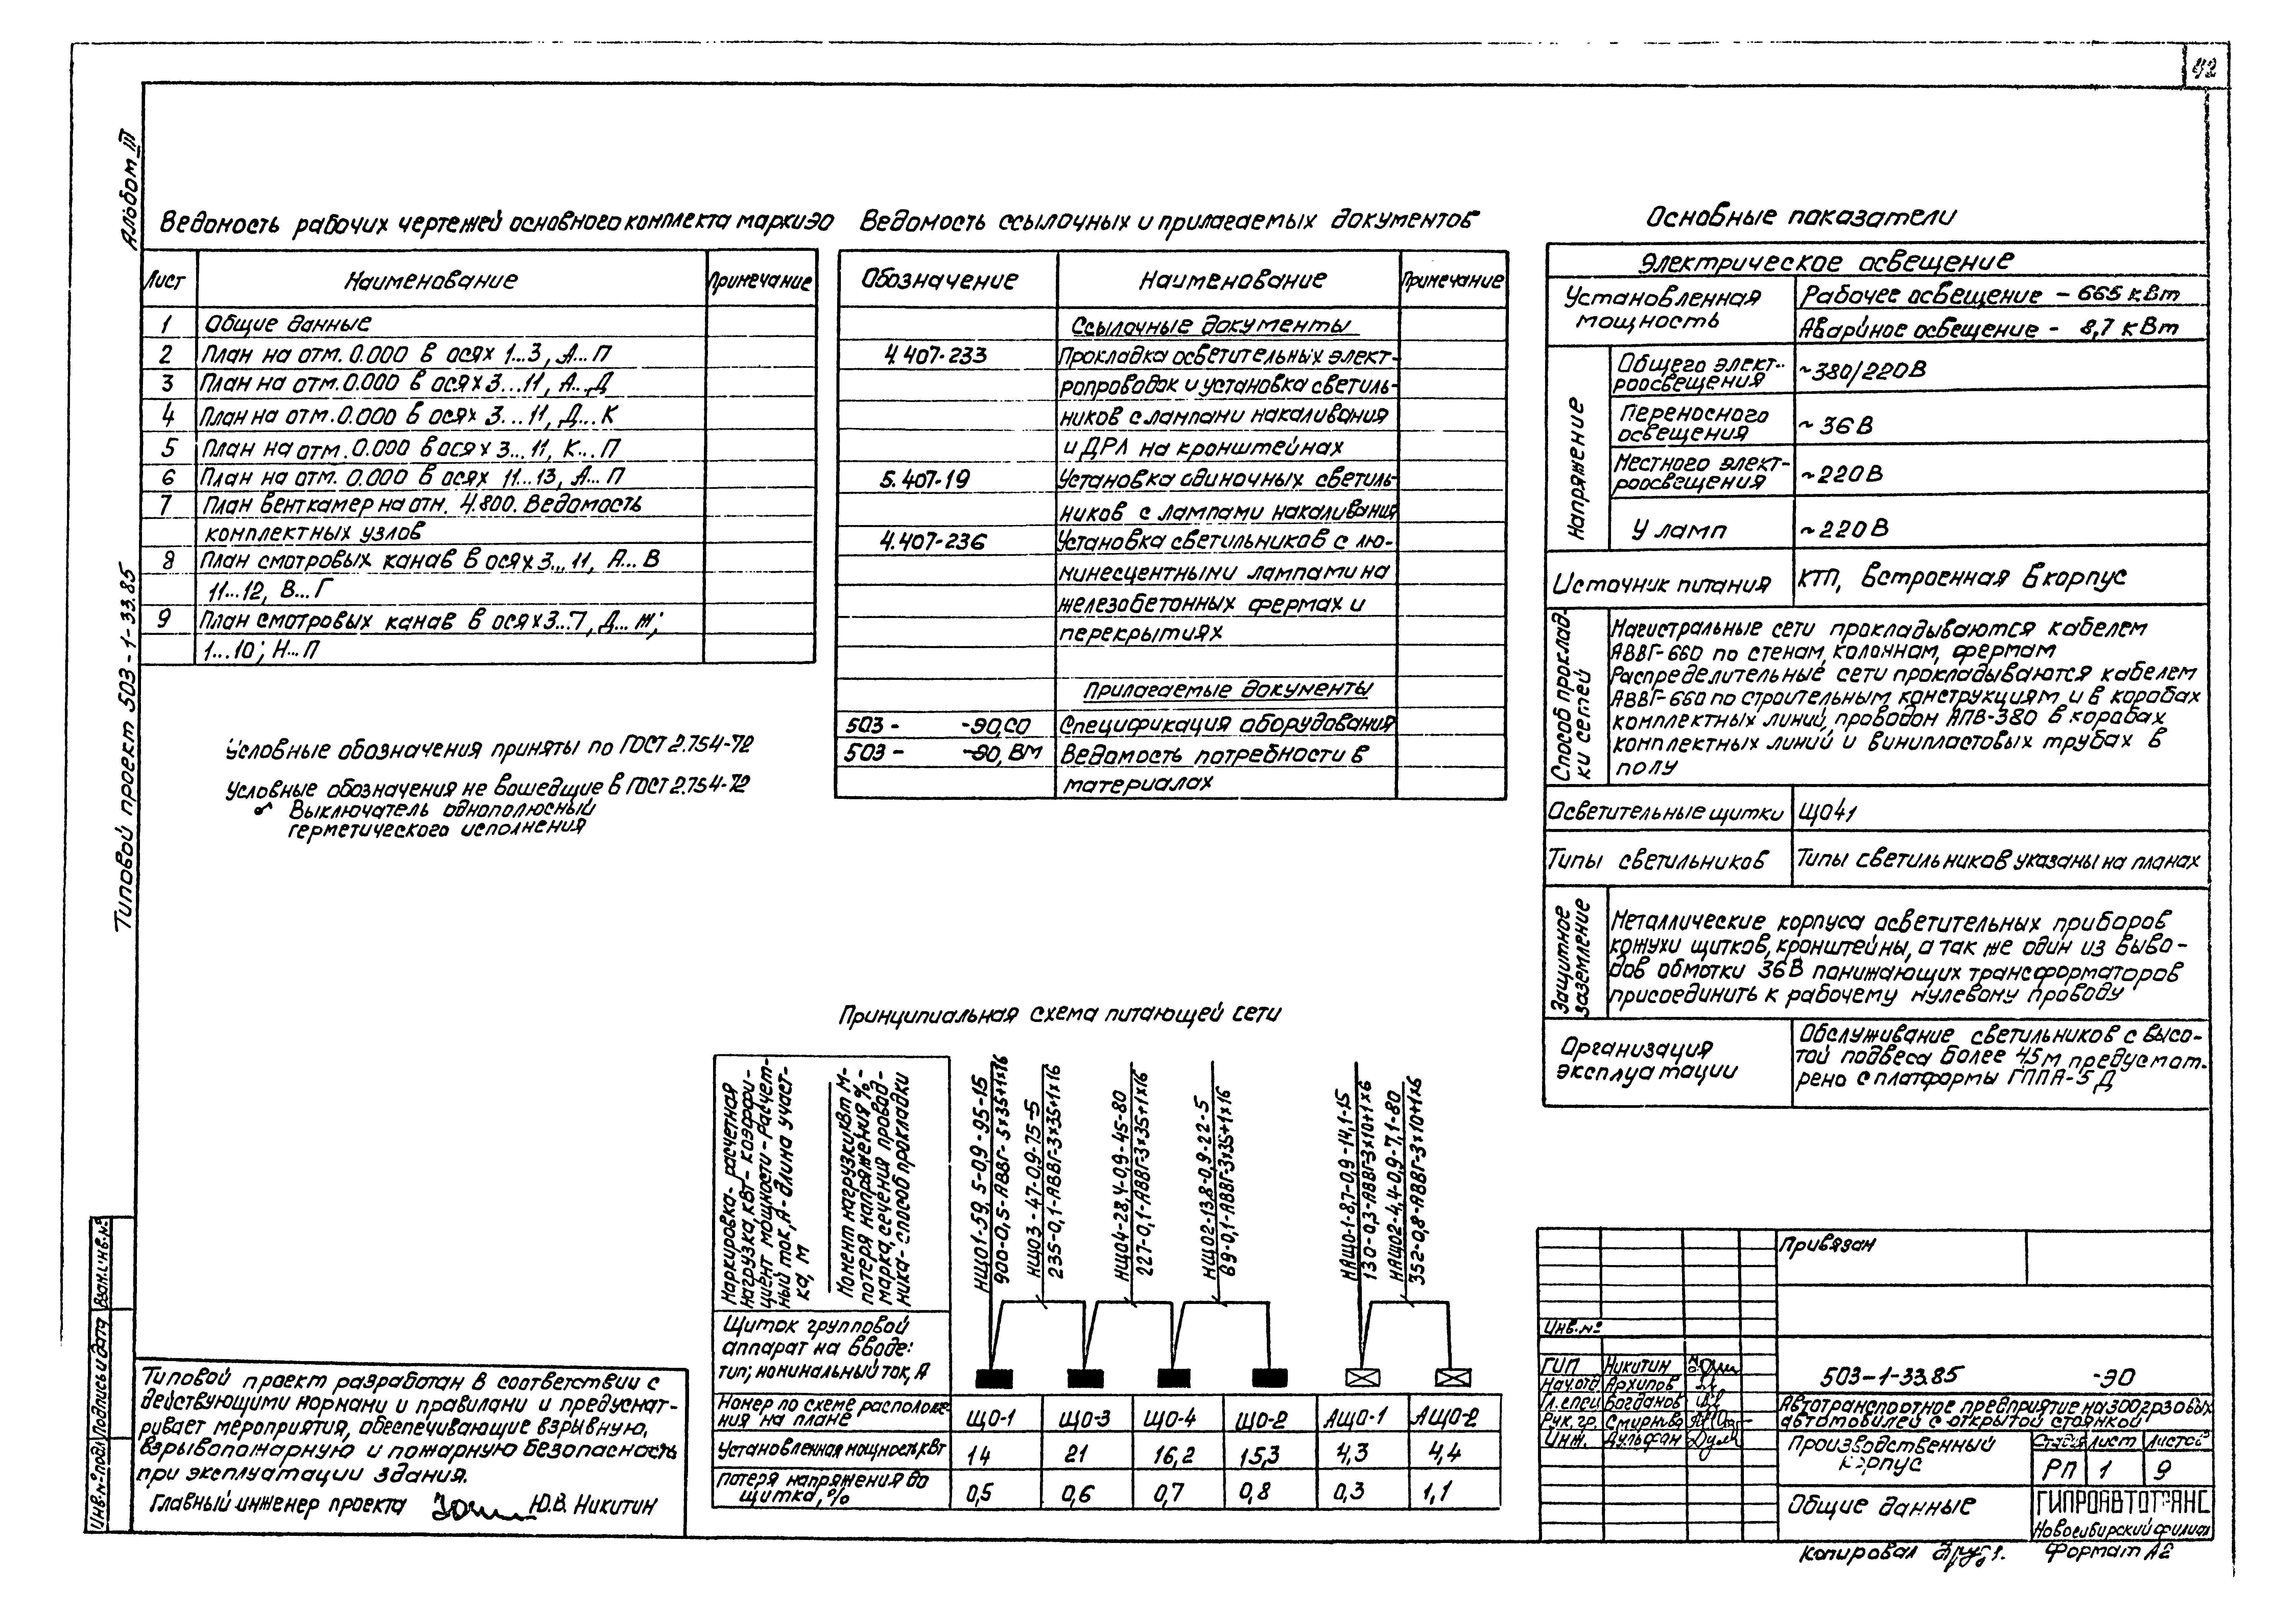 42
Альбом III
Типовой проект 503-1-33.85
Ведомость рабочих чертежей основного комплекта марки ЭО
Лист Наименование Примечание
1 Общие данные
2 План на отм. 0.000 в осях 1...3, А...П
3 План на отм. 0.000 в осях 3...11, А...Д
4 План на отм. 0.000 в осях 3...11, Д...К
5 План на отм. 0.000 в осях 3...11, К...П
6 План на отм. 0.000 в осях 11...13, А...П
7 План венткамер на отм. 4.800. Ведомость
комплектных узлов
8 План смотровых канав в осях 3...11, А...В
11...12, В...Г
9 План смотровых канав в осях 3...7, Д...Ж;
1...10; Н...П
Условные обозначения приняты по ГОСТ 2.754-72
Условные обозначения не вошедшие в ГОСТ 2.754-72
Выключатель однополюсный
герметического исполнения
Ведомость ссылочных и прилагаемых документов
Обозначение Наименование Примечание
Ссылочные документы
4.407-233 Прокладка осветительных элект-
ропроводок и установка светиль-
ников с лампами накаливания
и ДРЛ на кронштейнах
5.407-19 Установка одиночных светиль-
ников с лампами накаливания
4.407-236 Установка светильников с лю-
минесцентными лампами на
железобетонных фермах и
перекрытиях
Прилагаемые документы
503- -ЭО,СО Спецификация оборудования
503- -ЭО, ВМ Ведомость потребности в
материалах
Основные показатели
Электрическое освещение
Установленная мощность
Рабочее освещение - 665 кВт
Аварийное освещение - 8,7 кВт
Напряжение
Общего элект-
роосвещения ~380/220В
Переносного
освещения ~36В
Местного элект-
роосвещения ~220В
У ламп ~220В
Источник питания КТП, встроенная в корпус
Способ проклад-
ки сетей
Магистральные сети прокладываются кабелем
АВВГ-660 по стенам, колоннам, фермам
Распределительные сети прокладываются кабелем
АВВГ-660 по строительным конструкциям и в коробах
комплектных линий, проводом АПВ-380 в коробах
комплектных линий и винипластовых трубах в
полу
Осветительные щитки ЩО41
Типы светильников Типы светильников указаны на планах
Защитное
заземление
Металлические корпуса осветительных приборов
кожухи щитков, кронштейны, а так же один из выво-
дов обмотки 36В понижающих трансформаторов
присоединить к рабочему нулевому проводу
Организация
эксплуатации
Обслуживание светильников с высо-
той подвеса более 4,5м предусмот-
рено с платформы ГППА-5Д
Принципиальная схема питающей сети
Маркировка- расчетная
нагрузка, кВт - коэффи-
циент мощности - расчет-
ный ток, А - длина участ-
ка, м
Момент нагрузки кВт м-
потеря напряжения %-
марка, сечения провод-
ника - способ прокладки
НЩО1-59,5-0,9-95-15
900-0,5-АВВГ-5х35+1х16
НЩО3-47-0,9-75-5
235-0,1-АВВГ-3х35+1х16
НЩО4-28,4-0,9-45-80
227-0,1-АВВГ-3х35+1х16
НЩО2-13,8-0,9-22-5
69-0,1-АВВГ-3х35+1х16
НАЩО-1-8,7-0,9-14,1-15
130-0,3-АВВГ-3х10+1х6
НАЩО2-4,4-0,9-7,1-80
352-0,8-АВВГ-3х10+1х6
Щиток групповой
аппарат на вводе:
тип; номинальный ток, А
Номер по схеме расположе-
ния на плане ЩО-1 ЩО-3 ЩО-4 ЩО-2 АЩО-1 АЩО-2
Установленная мощность кВт 14 21 16,2 15,3 4,3 4,4
Потеря напряжения до
щитка, % 0,5 0,6 0,7 0,8 0,3 1,1
Типовой проект разработан в соответствии с
действующими нормами и правилами и предусмат-
ривает мероприятия, обеспечивающие взрывную,
взрывопожарную и пожарную безопасность
при эксплуатации здания.
Главный инженер проекта Ю.В. Никитин
Инв.№ подл. Подпись и дата Взам.инв.№
Привязан
Инв.№
ГИП Никитин
Нач.отд Архипов
Гл.спец Богданов
Рук. гр. Смирнова
Инж. Дульфан
503-1-33.85 -ЭО
Автотранспортное предприятие на 300 грузовых
автомобилей с открытой стоянкой
Производственный
корпус
Стадия Лист Листов
РП 1 9
Общие данные
ГИПРОАВТОТРАНС
Новосибирский филиал
Копировал Формат А2